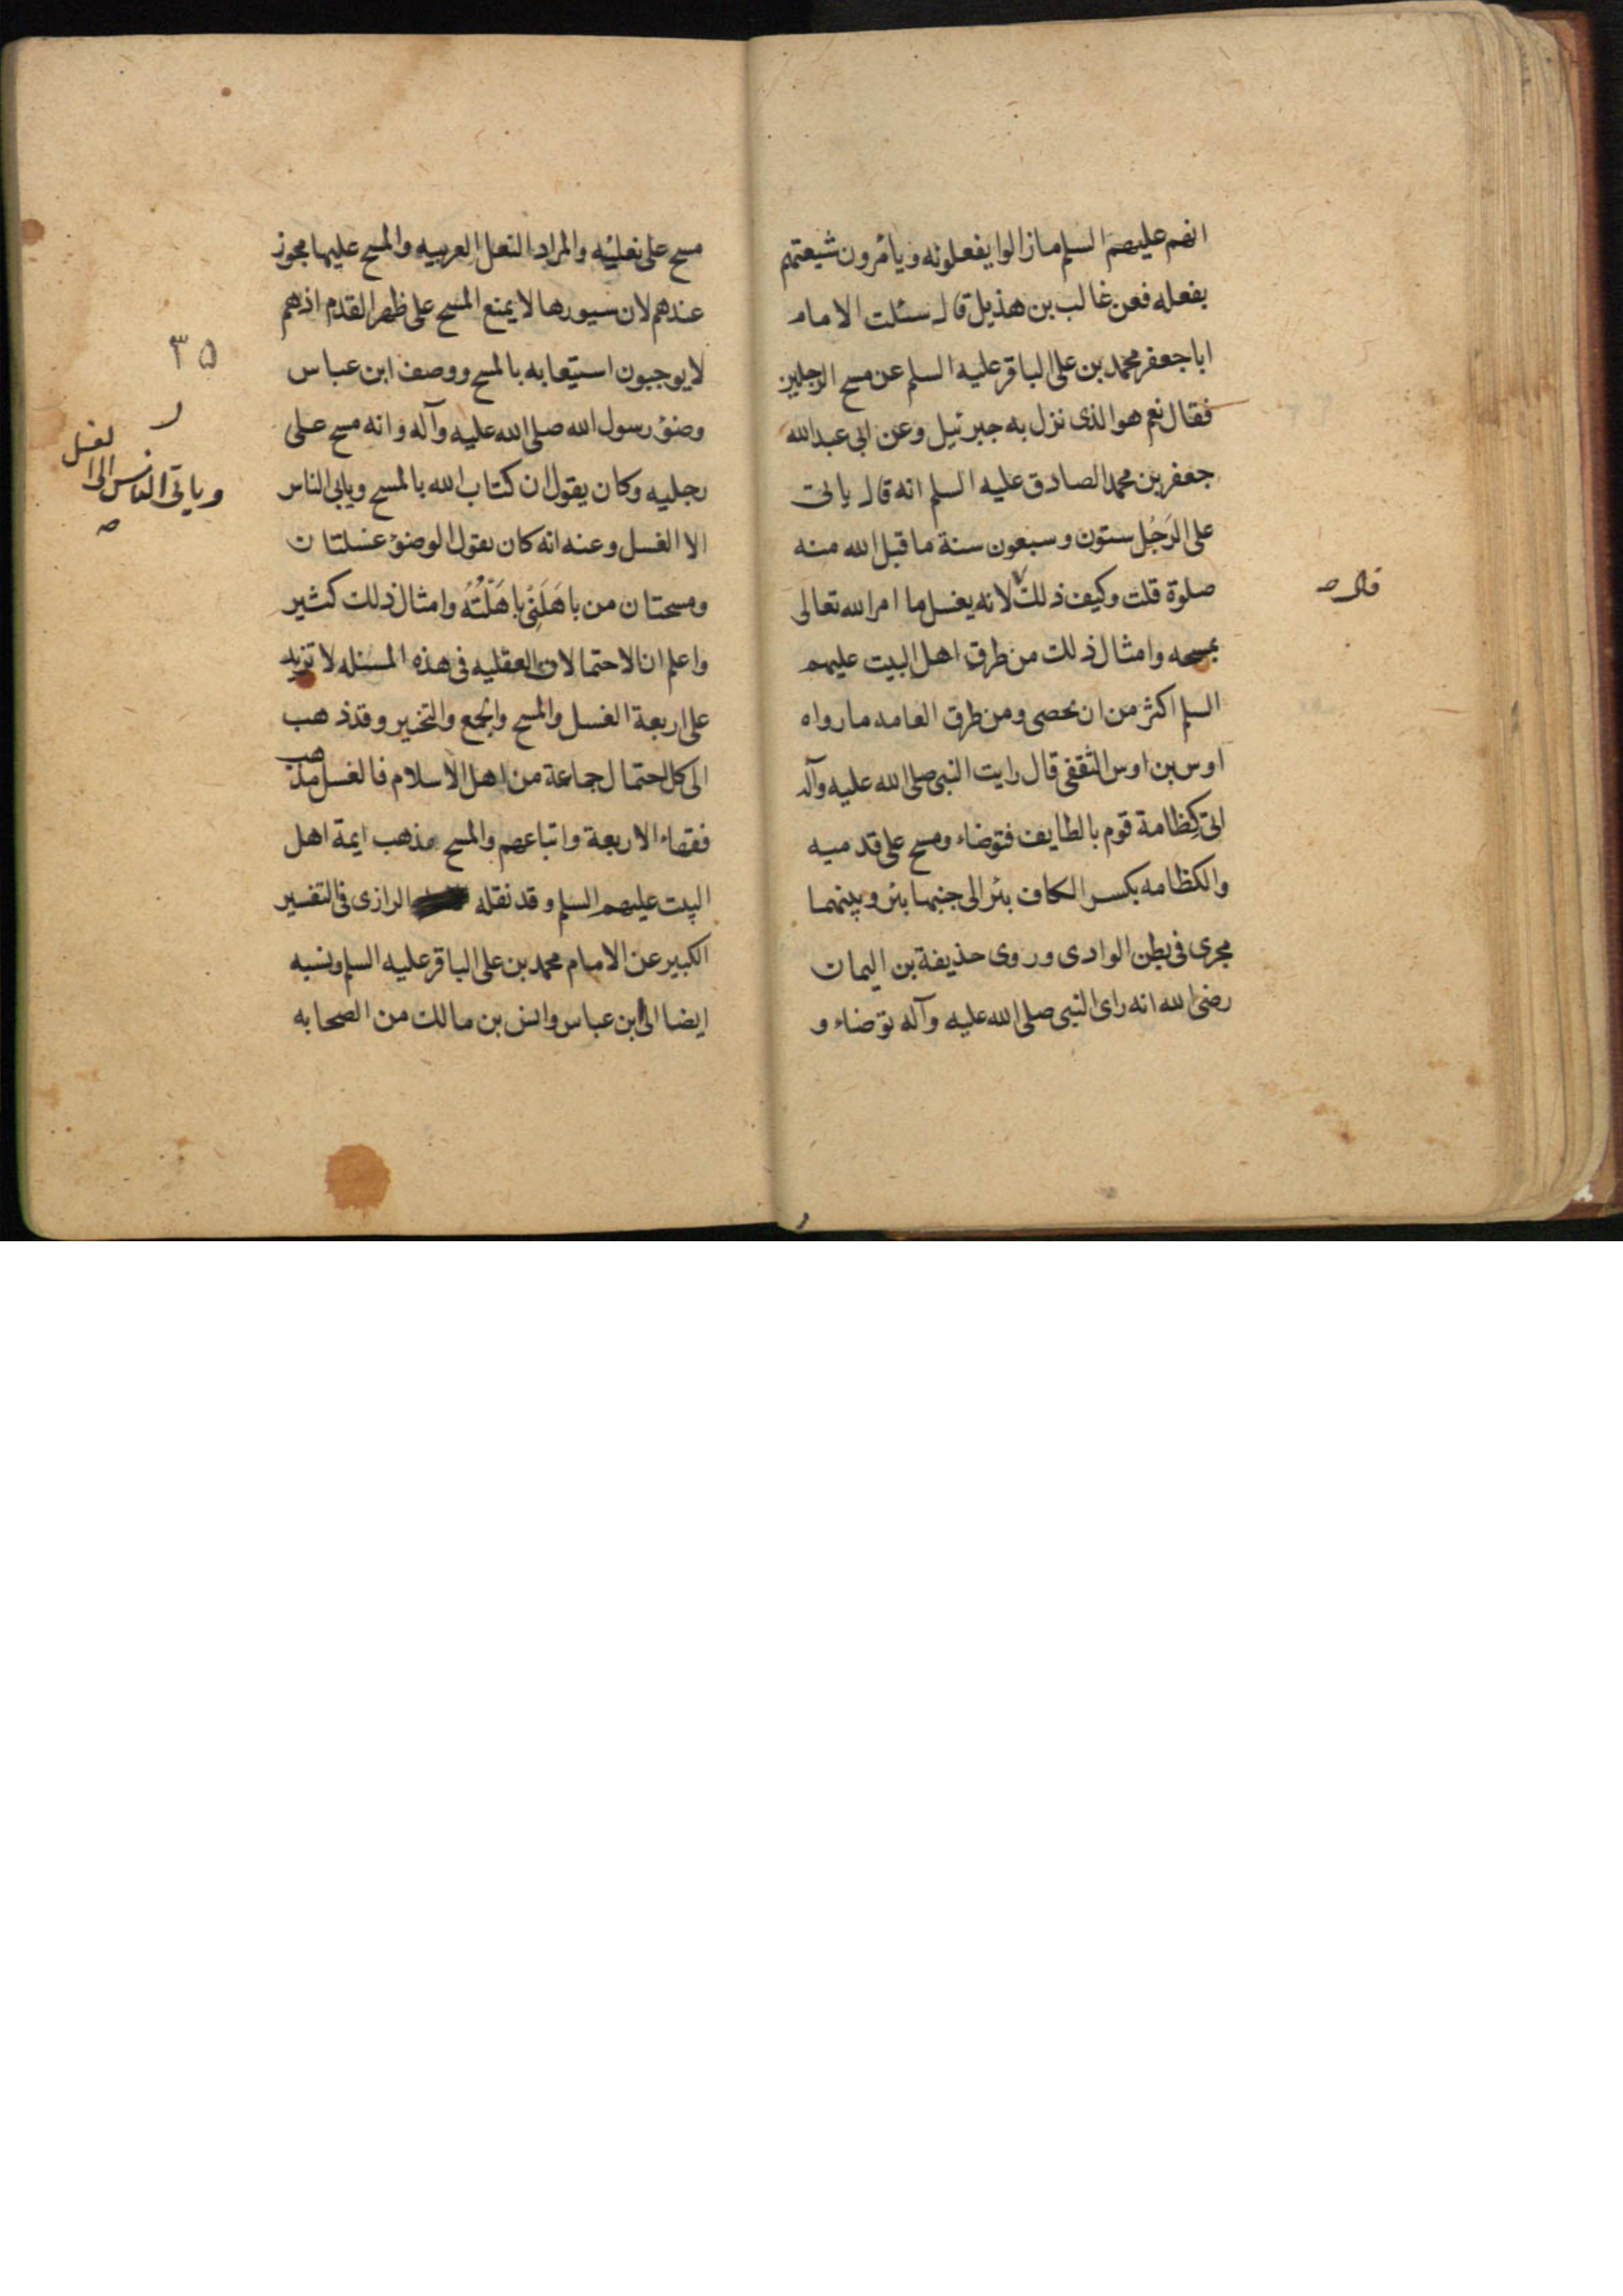 انهم عليهم السلم مازالوا يفعلونه ويأمرون شيعتهم
بفعله فعن غالب بن هذيل قال سئلت الامام
اباجعفر محمد بن على الباقر عليه السلم عن مسح الرجلين
فقال نعم هو الذى نزل به جبرئيل وعن ابى عبدالله
جعفر بن محمد الصادق عليه السلم انه قال ياتى
على الرَجُل ستون وسبعون سنة ما قبل الله منه
صلوة قلت وكيف ذلك لانه يغسل ما امر الله تعالى
قال صح
بمسحه وامثال ذلك من طرق اهل البيت عليهم
السلم اكثر من ان يحصى ومن طرق العامه ما رواه
اوس بن اوس الثقفى قال رايت النبى صلى الله عليه وآله
اتى كِظامة قوم بالطايف فتوضاء ومسح على قدميه
والكظامه بكسر الكاف بئر الى جنبها بئر وبينهما
مجرى فى بطن الوادى وروى حذيفة بن اليمان
رضى الله انه راى النبى صلى الله عليه وآله توضاء و
مسح على نعليه والمراد النعل العربيه والمسح عليها يجوز
عندهم لان سيورها لا يمنع المسح على ظهر القدم اذهم
لايوجبون استيعابه بالمسح ووصف ابن عباس
وضؤ رسول الله صلى الله عليه وآله وانه مسح على
رجليه وكان يقول ان كتاب الله بالمسح ويابى الناس
الا الغسل وعنه انه كان يقول الوضؤ غسلتان
ومسحتان من باهَلَنِى باهَلْتُهُ وامثال ذلك كثير
واعلم ان الاحتمالات العقليه فى هذه المسئله لا تزيد
على اربعة الغسل والمسح والجمع والتخير وقد ذهب
الى كل احتمال جماعة من اهل الاسلام فالغسل مذهب
فقهاء الاربعة واتباعهم والمسح مذهب ايمة اهل
البيت عليهم السلم وقد نقله الرازى فى التفسير
الكبير عن الامام محمد بن على الباقر عليه السلم ونسبه
ايضا الى ابن عباس وانس بن مالك من الصحابه
٣٥
وياتى الناس الا
لغسل